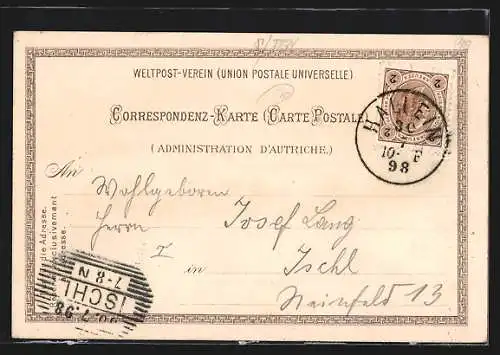 WELTPOST-VEREIN (UNION POSTALE UNIVERSELLE)
CORRESPONDENZ-KARTE (CARTE POSTALE)
(ADMINISTRATION D'AUTRICHE.)
2 2
2 2
HALLEIN
30
7
10- F
98
An
Wohlgeboren
Herrn Josef Lang
in Ischl
13
die Adresse.
exclusivement
ISCHL
7-8 N
7.98